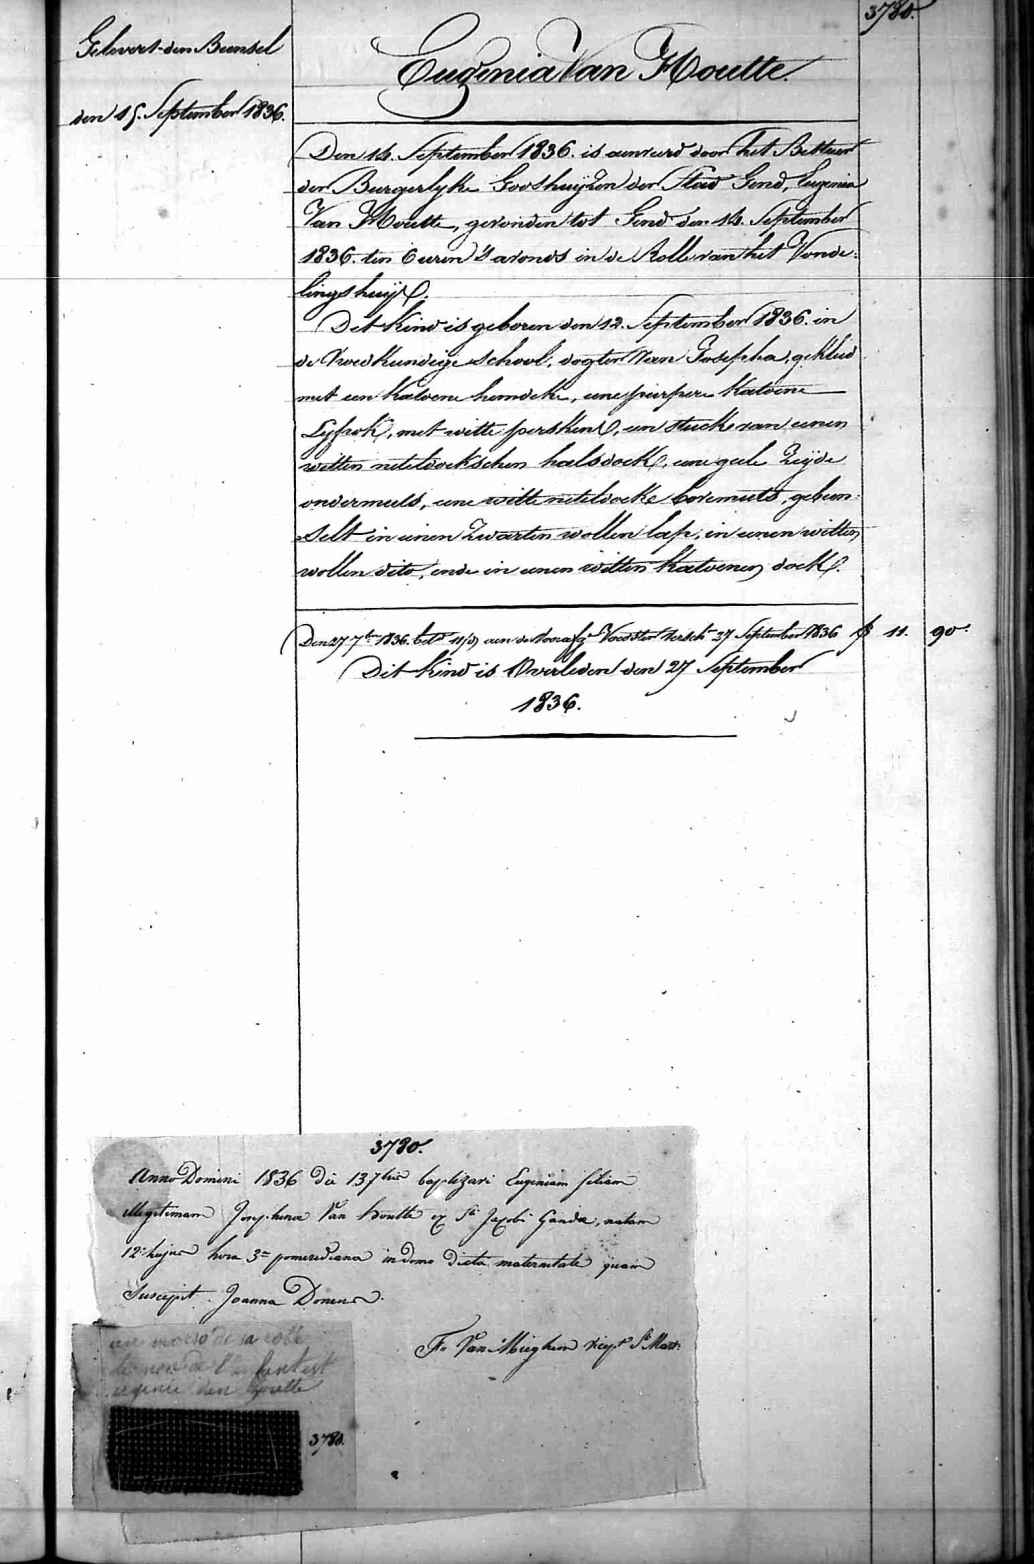 3780.
Gelevert den Bunsel
den 15. September 1836.
Eugenia Van Houtte.
Den 14. September 1836. is aenveerd door het Bestuer
der Burgerlyke Godshuijzen der Stad Gend, Eugenia
Van Houtte, gevonden tot Gend den 14. September
1836. ten 6 uren 's avonds in de Rolle van het Vonde-
lingshuijs.
Dit Kind is geboren den 12. September 1836. in
de Vroedkundige school, dogter van Josepha, gekleed
met een katoene hemdeke, eene purpere katoene
Lyfrok, met witte perskens, een stuck van eenen
witten neteldoekschen halsdoek, eene geele Zeijde
ondermuts, eene witte neteldoeke bovemuts, gebun-
selt in eenen zwarten wollen lap, in eenen witten
wollen dito, ende in eenen witten katoenen doek.
Den 27 7bre 1836. aen de Voedster 27 September 1836 11. 90.
Dit kind is Overleden den 27 September
1836.
3780.
Anno Domini 1836 die 13 7bris baptizavi Eugeniam filiam
illegitimam Josephinae Van houtte ex St Jacobi Gandae, natam
12a hujus hora 3a pomeridiana in domo dicta maternitate quam
Suscepit Joanna
F. Van Mieghem St Mart.
un morso de sa robe
le nom de l'enfant est
eugenie Van Houtte
3780.